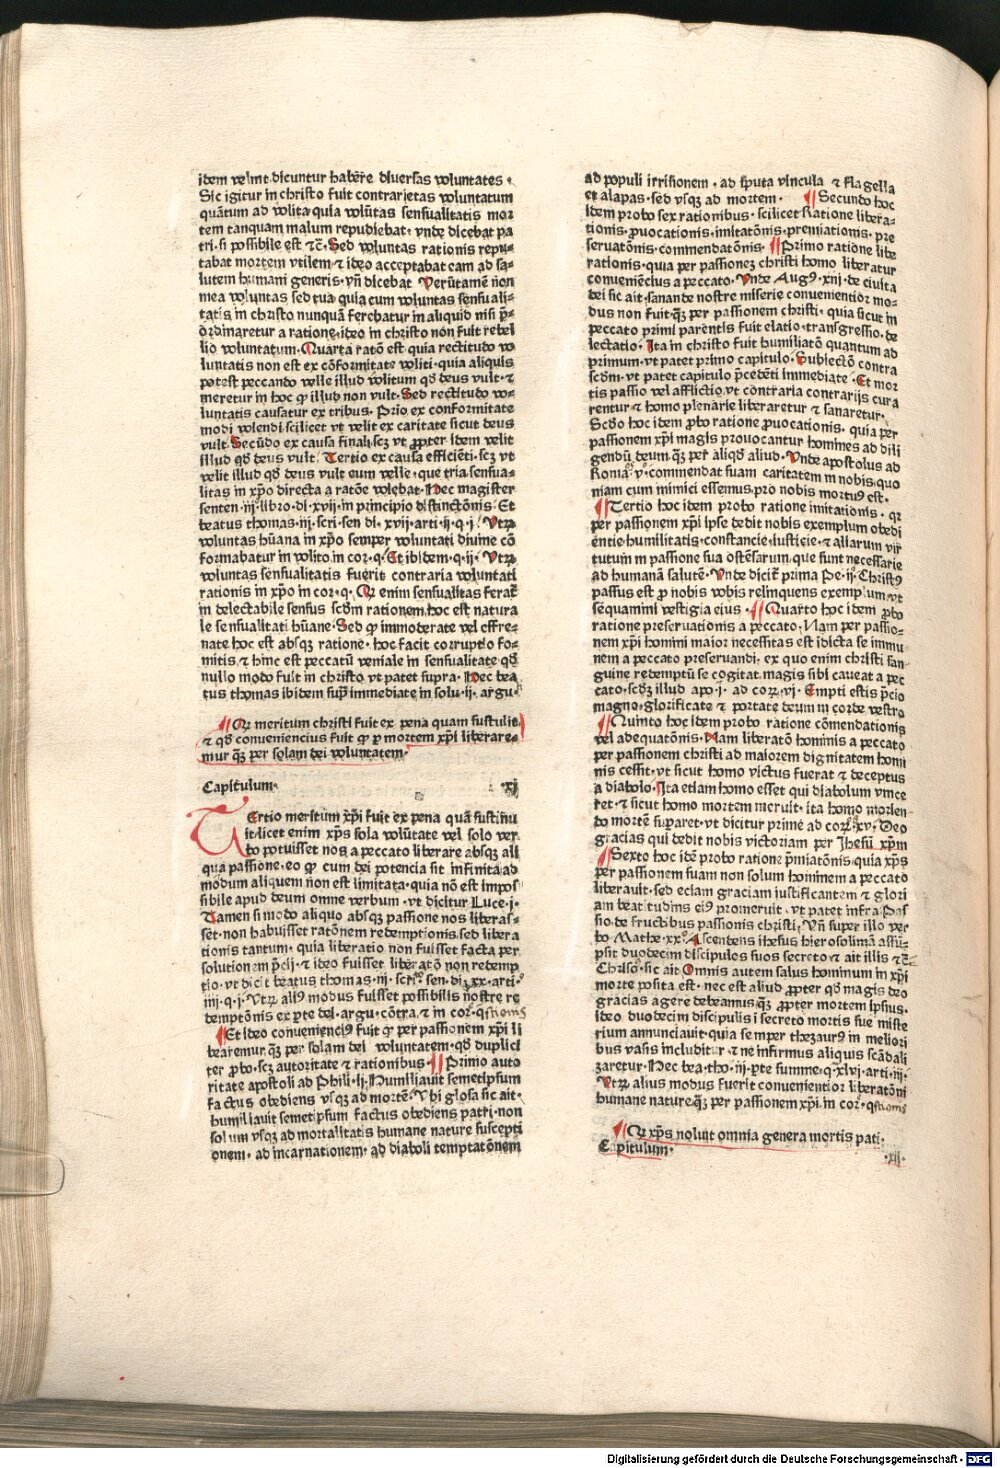 idem velint dicuntur habere diuersas voluntates ·
Sic igitur in christo fuit contrarietas voluntatum
quãtum ad volita quia volũtas sensualitatis mor
tem tanquam malum repudiebat · vnde dicebat pa
tri · si possibile est ⁊c̃ · Sed voluntas rationis repu⸗
tabat mortem vtilem ⁊ ideo acceptabat eam ad sa⸗
lutem humani generis · vñ dicebat Verũtamẽ non
mea voluntas sed tua quia cum voluntas sensuali⸗
tatis in christo nunquã ferebatur in aliquid nisi p̃⸗
ordinaretur a ratione · ideo in christo non fuit rebel
lio voluntatum · Quarta ratõ est quia rectitudo vo
luntatis non est ex cõformitate voliti · quia aliquis
potest peccando velle illud volitum qđ deus vult · ⁊
meretur in hoc ꝙ illud non vult · Sed rectitudo vo⸗
luntatis causatur ex tribus · Prĩo ex conformitate
modi volendi scilicet vt velit ex caritate sicut deus
vult · Secũdo ex causa finali · scꝫ vt ꝓpter idem velit
illud qđ deus vult · Tertio ex causa efficiẽti · scꝫ vt
velit illud qđ deus vult eum velle · que tria sensua⸗
litas in xp̃o directa a ratõe volebat · Hec magister
senten · iij · libro · di · xvij · in principio distinctõnis · Et
beatus thomas · iij · scri · sen di · xvij · arti · ij · q · j · Vtꝝ
voluntas hũana in xp̃o semper voluntati diuine cõ
formabatur in volito in cor · q · Et ibidem · q · ij · Vtꝝ
voluntas sensualitatis fuerit contraria voluntati
rationis in xp̃o in cor · q · Qꝛ enim sensualitas feraꝉ
in delectabile sensus scđm rationem hoc est natura
le sensualitati hũane · Sed ꝙ immoderate vel effre⸗
nate hoc est absqꝫ ratione · hoc facit corruptio fo⸗
mitis · ⁊ hinc est peccatũ veniale in sensualitate qđ
nullo modo fuit in christo vt patet supra · Hec bea
tus thomas ibidem sup̃ immediate in solu · ij · argu ·
¶ Qꝛ meritum christi fuit ex pena quam sustulit ·
⁊ qđ conueniencius fuit ꝙ ꝑ mortem xp̃i liberare⸗
mur qꝫ̃ per solam dei voluntatem ·
Capitulum · · xj
TErtio meritum xp̃i fuit ex pena quã sustinu
it · licet enim xp̃s sola volũtate vel solo ver
bo potuisset nos a peccato liberare absqꝫ ali
qua passione · eo ꝙ cum dei potencia sit infinita ad
modum aliquem non est limitata · quia nõ est impos
sibile apud deum omne verbum · vt dicitur Luce · j ·
Tamen si modo aliquo absqꝫ passione nos liberas⸗
set · non habuisset ratõnem redemptionis sed libera
tionis tantum · quia liberatio non fuisset facta per
solutionem p̃cij · ⁊ ideo fuisset liberatõ non redemp
tio · vt dicit beatus thomas · iij · scri · sen · di · xx · arti ·
iiij · q · j · Vtꝝ aliꝰ modus fuisset possibilis nostre re
demptõnis ex ꝑte dei · argu · cõtra · ⁊ in cor · qstionis
¶ Et ideo conuenienciꝰ fuit ꝙ per passionem xp̃i li
beraremur qꝫ̃ per solam dei voluntatem · qđ duplici
ter ꝓbo · scꝫ autoritate ⁊ rationibus · ¶ Primo auto
ritate apostoli ad Phili · ij · Humiliauit semetipsum
factus obediens vsqꝫ ad mortẽ · Vbi glosa sic ait ·
humiliauit semetipsum factus obediens patri · non
solum vsqꝫ ad mortalitatis humane nature suscepti
onem · ad incarnationem · ad diaboli temptatõnem
ad populi irrisionem · ad sputa vincula ⁊ flagella
et alapas · sed vsqꝫ ad mortem · ¶ Secundo hoc
idem probo sex rationibus · scilicet Ratione libera⸗
tionis · ꝓuocationis · imitatõnis · premiationis · pre
seruatõnis · commendatõnis · ¶ Primo ratione libe
rationis · quia per passionez christi homo liberatur
conueniẽcius a peccato · Vnde Augꝰ · xiij · de ciuita
dei sic ait · sanande nostre miserie conuenientior mo⸗
dus non fuit qꝫ̃ per passionem christi · quia sicut in
peccato primi parentis fuit elatio · transgressio · de
lectatio · Ita in christo fuit humiliatõ quantum ad
primum · vt patet primo capitulo · Subiectõ contra
scđm · vt patet capitulo p̃cedẽti immediate · Et mor
tis passio vel afflictio · vt contraria contrarijs cura
rentur ⁊ homo plenarie liberaretur ⁊ sanaretur ·
Scđo hoc idem ꝓbo ratione ꝓuocationis · quia per
passionem xp̃i magis prouocantur homines ad dili
gendũ deum qꝫ̃ per aliqđ aliud · Vnde apostolus ad
Roma · v · commendat suam caritatem in nobis quo
niam cum inimici essemus · pro nobis mortuꝰ est ·
¶ Tertio hoc idem probo ratione imitationis · qꝛ
per passionem xp̃i ipse dedit nobis exemplum obedi
entie humilitatis · constancie · iusticie · ⁊ aliarum vir
tutum in passione sua ostẽsarum · que sunt necessarie
ad humanã salutẽ · Vnde diciꝉ prima Pe · ij · Christꝰ
passus est ꝓ nobis vobis relinquens exemplum · vt
sequamini vestigia eius · ¶ Quarto hoc idem ꝓbo
ratione preseruationis a peccato · Nam per passio⸗
nem xp̃i homini maior necessitas est idicta se immu
nem a peccato preseruandi · ex quo enim christi san⸗
guine redemptũ se cogitat magis sibi caueat a pec
cato · scđꝫ illud apo · j · ad coꝝ · vj · Empti estis p̃cio
magno · glorificate ⁊ portate deum in corde vestro
¶ Quinto hoc idem probo ratione cõmendationis
vel adequatõnis · Nam liberatõ hominis a peccato
per passionem christi ad maiorem dignitatem homi
nis cessit · vt sicut homo victus fuerat ⁊ deceptus
a diabolo · Ita etiam homo esset qui diabolum vince
ret · ⁊ sicut homo mortem meruit · ita homo morien
do mortẽ suꝑaret · vt dicitur prime ad coꝝ · xv · Deo
gracias qui dedit nobis victoriam per Jhesũ xp̃m
¶ Sexto hoc idẽ probo ratione p̃miatõnis · quia xp̃s
per passionem suam non solum hominem a peccato
liberauit · sed eciam graciam iustificantem ⁊ glori
am beatitudinis eiꝰ promeruit · vt patet infra Pas
sio · de fructibus passionis christi · Vñ super illo ver
bo Mathe · xx · Ascendens ihesus hierosolimã assũ⸗
psit duodecim discipulos suos secreto · ⁊ ait illis ⁊c̃ ·
Chrisoꝰ · sic ait · Omnis autem salus hominum in xp̃i
morte posita est · nec est aliud ꝓpter qđ magis deo
gracias agere debeamus qꝫ̃ ꝓpter mortem ipsius ·
ideo duodecim discipulis in secreto mortis sue miste
rium annunciauit · quia semper thezaurꝰ in meliori
bus vasis includitur · ⁊ ne infirmus aliquis scãdali
zaretur · Hec bea · tho · iij · ꝑte summe · q · xlvj · arti · iij ·
Vtꝝ alius modus fuerit conuenientior liberatõni
humane nature qꝫ̃ per passionem xp̃i · in cor · qstionis
¶ Qꝛ xp̃s noluit omnia genera mortis pati ·
Capitulum · · xij ·
Digitalisierung gefördert durch die Deutsche Forschungsgemeinschaft - DFG